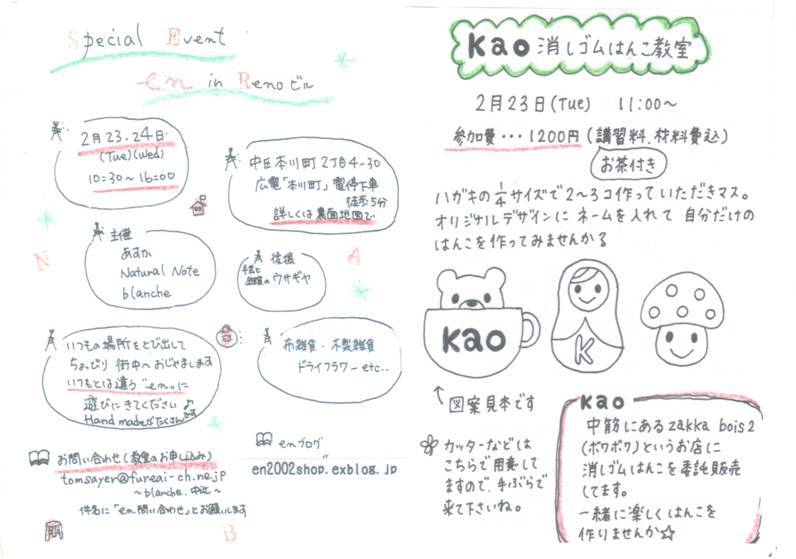 Special Event
en in Renoビル
2月23.24日
(Tue)(Wed)
10:30~16:00
中区本川町2丁目4-30
広電「本川町」電停下車
徒歩5分
詳しくは裏面地図で
主催
あすか
Natural Note
blanche
後援
手芸と
ウサギヤ
N
A
いつもの場所をとび出して
ちょっぴり街中へおじゃまします
いつもとは違う"en"に
遊びにきてください♪
Hand madeがたくさん
布雑貨・木製雑貨
ドライフラワー etc..
お問い合わせ(教室のお申し込み)
tomsayer@fureai-ch.ne.jp
~blanche. 中江~
件名に「en.問い合わせ」とお願いします
B
enブログ
en2002shop.exblog.jp
Kao 消しゴムはんこ教室
2月23日(Tue) 11:00~
参加費・・・1200円(講習料、材料費込)
お茶付き
ハガキの1/4サイズで2~3コ作っていただきマス。
オリジナルデザインに ネームを入れて 自分だけの
はんこを作ってみませんか?
Kao
K
↑図案見本です
カッターなどは
こちらで用意して
ますので、手ぶらで
来て下さいね。
Kao
中筋にあるzakka bois2
(ボワボワ)というお店に
消しゴムはんこを委託販売
してます。
一緒に楽しくはんこを
作りませんか☆